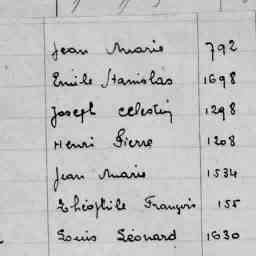 Jean Marie 792
Emile Stanislas 1698
Joseph Celestin 1298
Henri Pierre 1208
Jean Marie 1534
Théophile François 155
Louis Léonard 1630